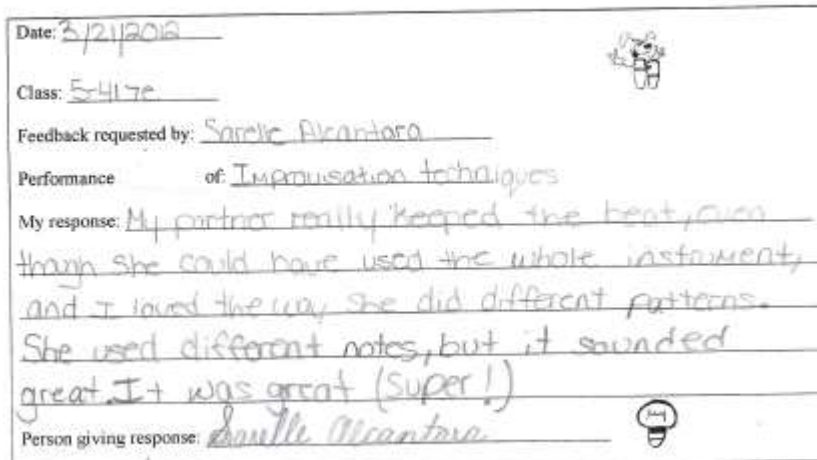 Date: 3/21/2012
Class: 5-417e
Feedback requested by: Sarelle Alcantara
Performance of: Improvisation techniques
My response: My partner really keeped the beat, even
though she could have used the whole instrument,
and I loved the way she did different patterns.
She used different notes, but it sounded
great. It was great (Super!)
Person giving response: Sarelle Alcantara